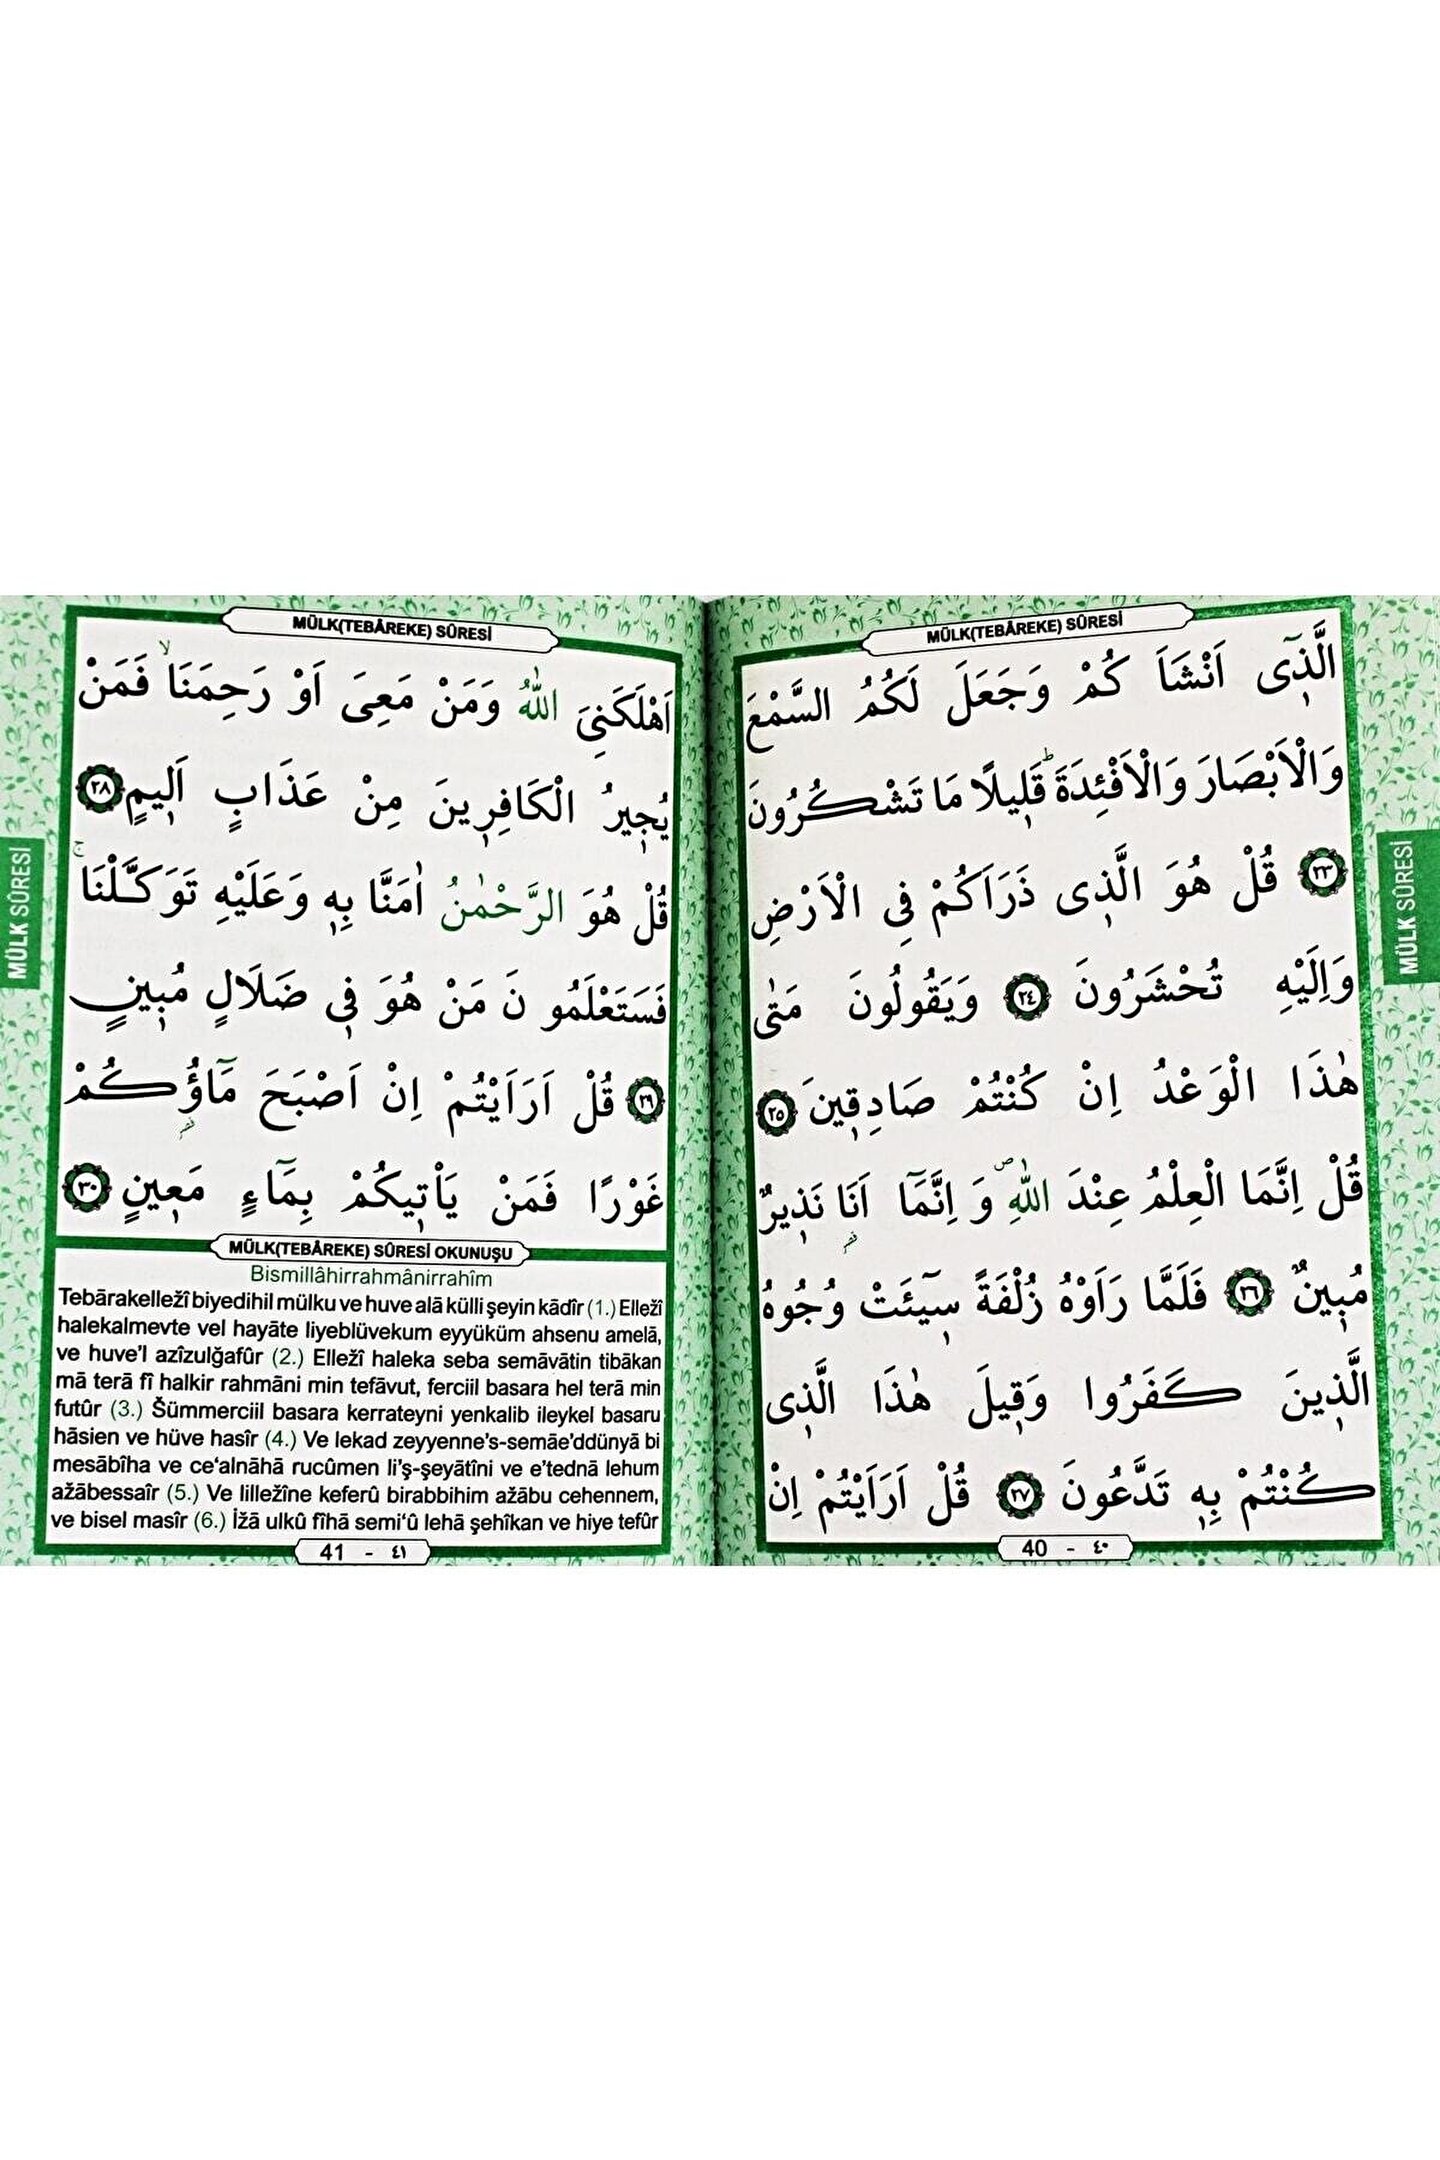 MÜLK(TEBÂREKE) SÛRESİ
الَّذٖٓى اَنْشَاَ كُمْ وَجَعَلَ لَكُمُ السَّمْعَ
وَالْاَبْصَارَ وَالْاَفْئِدَةَ ؕ قَلٖيلًا مَا تَشْكُرُونَ
﴿٢٣﴾ قُلْ هُوَ الَّذٖى ذَرَاَكُمْ فِى الْاَرْضِ
وَاِلَيْهِ تُحْشَرُونَ ﴿٢٤﴾ وَيَقُولُونَ مَتٰى
هٰذَا الْوَعْدُ اِنْ كُنْتُمْ صَادِقٖينَ ﴿٢٥﴾
قُلْ اِنَّمَا الْعِلْمُ عِنْدَ اللّٰهِ ۖ وَ اِنَّمَٓا اَنَا نَذٖيرٌ
مُبٖينٌ ﴿٢٦﴾ فَلَمَّا رَاَوْهُ زُلْفَةً سٖٓيـَٔتْ وُجُوهُ
الَّذٖينَ كَفَرُوا وَقٖيلَ هٰذَا الَّذٖى
كُنْتُمْ بِهٖ تَدَّعُونَ ﴿٢٧﴾ قُلْ اَرَاَيْتُمْ اِنْ
40 - ٤٠
MÜLK SÛRESİ
MÜLK(TEBÂREKE) SÛRESİ
اَهْلَكَنِىَ اللّٰهُ وَمَنْ مَعِىَ اَوْ رَحِمَنَا ۙ فَمَنْ
يُجٖيرُ الْكَافِرٖينَ مِنْ عَذَابٍ اَلٖيمٍ ﴿٢٨﴾
قُلْ هُوَ الرَّحْمٰنُ اٰمَنَّا بِهٖ وَعَلَيْهِ تَوَكَّلْنَا ۚ
فَسَتَعْلَمُو نَ مَنْ هُوَ فٖى ضَلَالٍ مُبٖينٍ
﴿٢٩﴾ قُلْ اَرَاَيْتُمْ اِنْ اَصْبَحَ مَٓاؤُكُمْ
غَوْرًا فَمَنْ يَاْتٖيكُمْ بِمَٓاءٍ مَعٖينٍ ﴿٣٠﴾
MÜLK(TEBÂREKE) SÛRESİ OKUNUŞU
Bismillâhirrahmânirrahîm
Tebārakelležî biyedihil mülku ve huve alā külli şeyin kādîr (1.) Elležî
halekalmevte vel hayāte liyeblüvekum eyyüküm ahsenu amelā,
ve huve'l azîzulğafûr (2.) Elležî haleka seba semāvātin tibākan
mā terā fî halkir rahmāni min tefāvut, ferciil basara hel terā min
futûr (3.) Šümmerciil basara kerrateyni yenkalib ileykel basaru
hāsien ve hüve hasîr (4.) Ve lekad zeyyenne's-semāe'ddünyā bi
mesābîha ve ce‘alnāhā rucûmen li'ş-şeyātîni ve e'tednā lehum
ažābessaîr (5.) Ve lilležîne keferû birabbihim ažābu cehennem,
ve bisel masîr (6.) İžā ulkû fîhā semi‘û lehā şehîkan ve hiye tefûr
41 - ٤١
MÜLK SÛRESİ